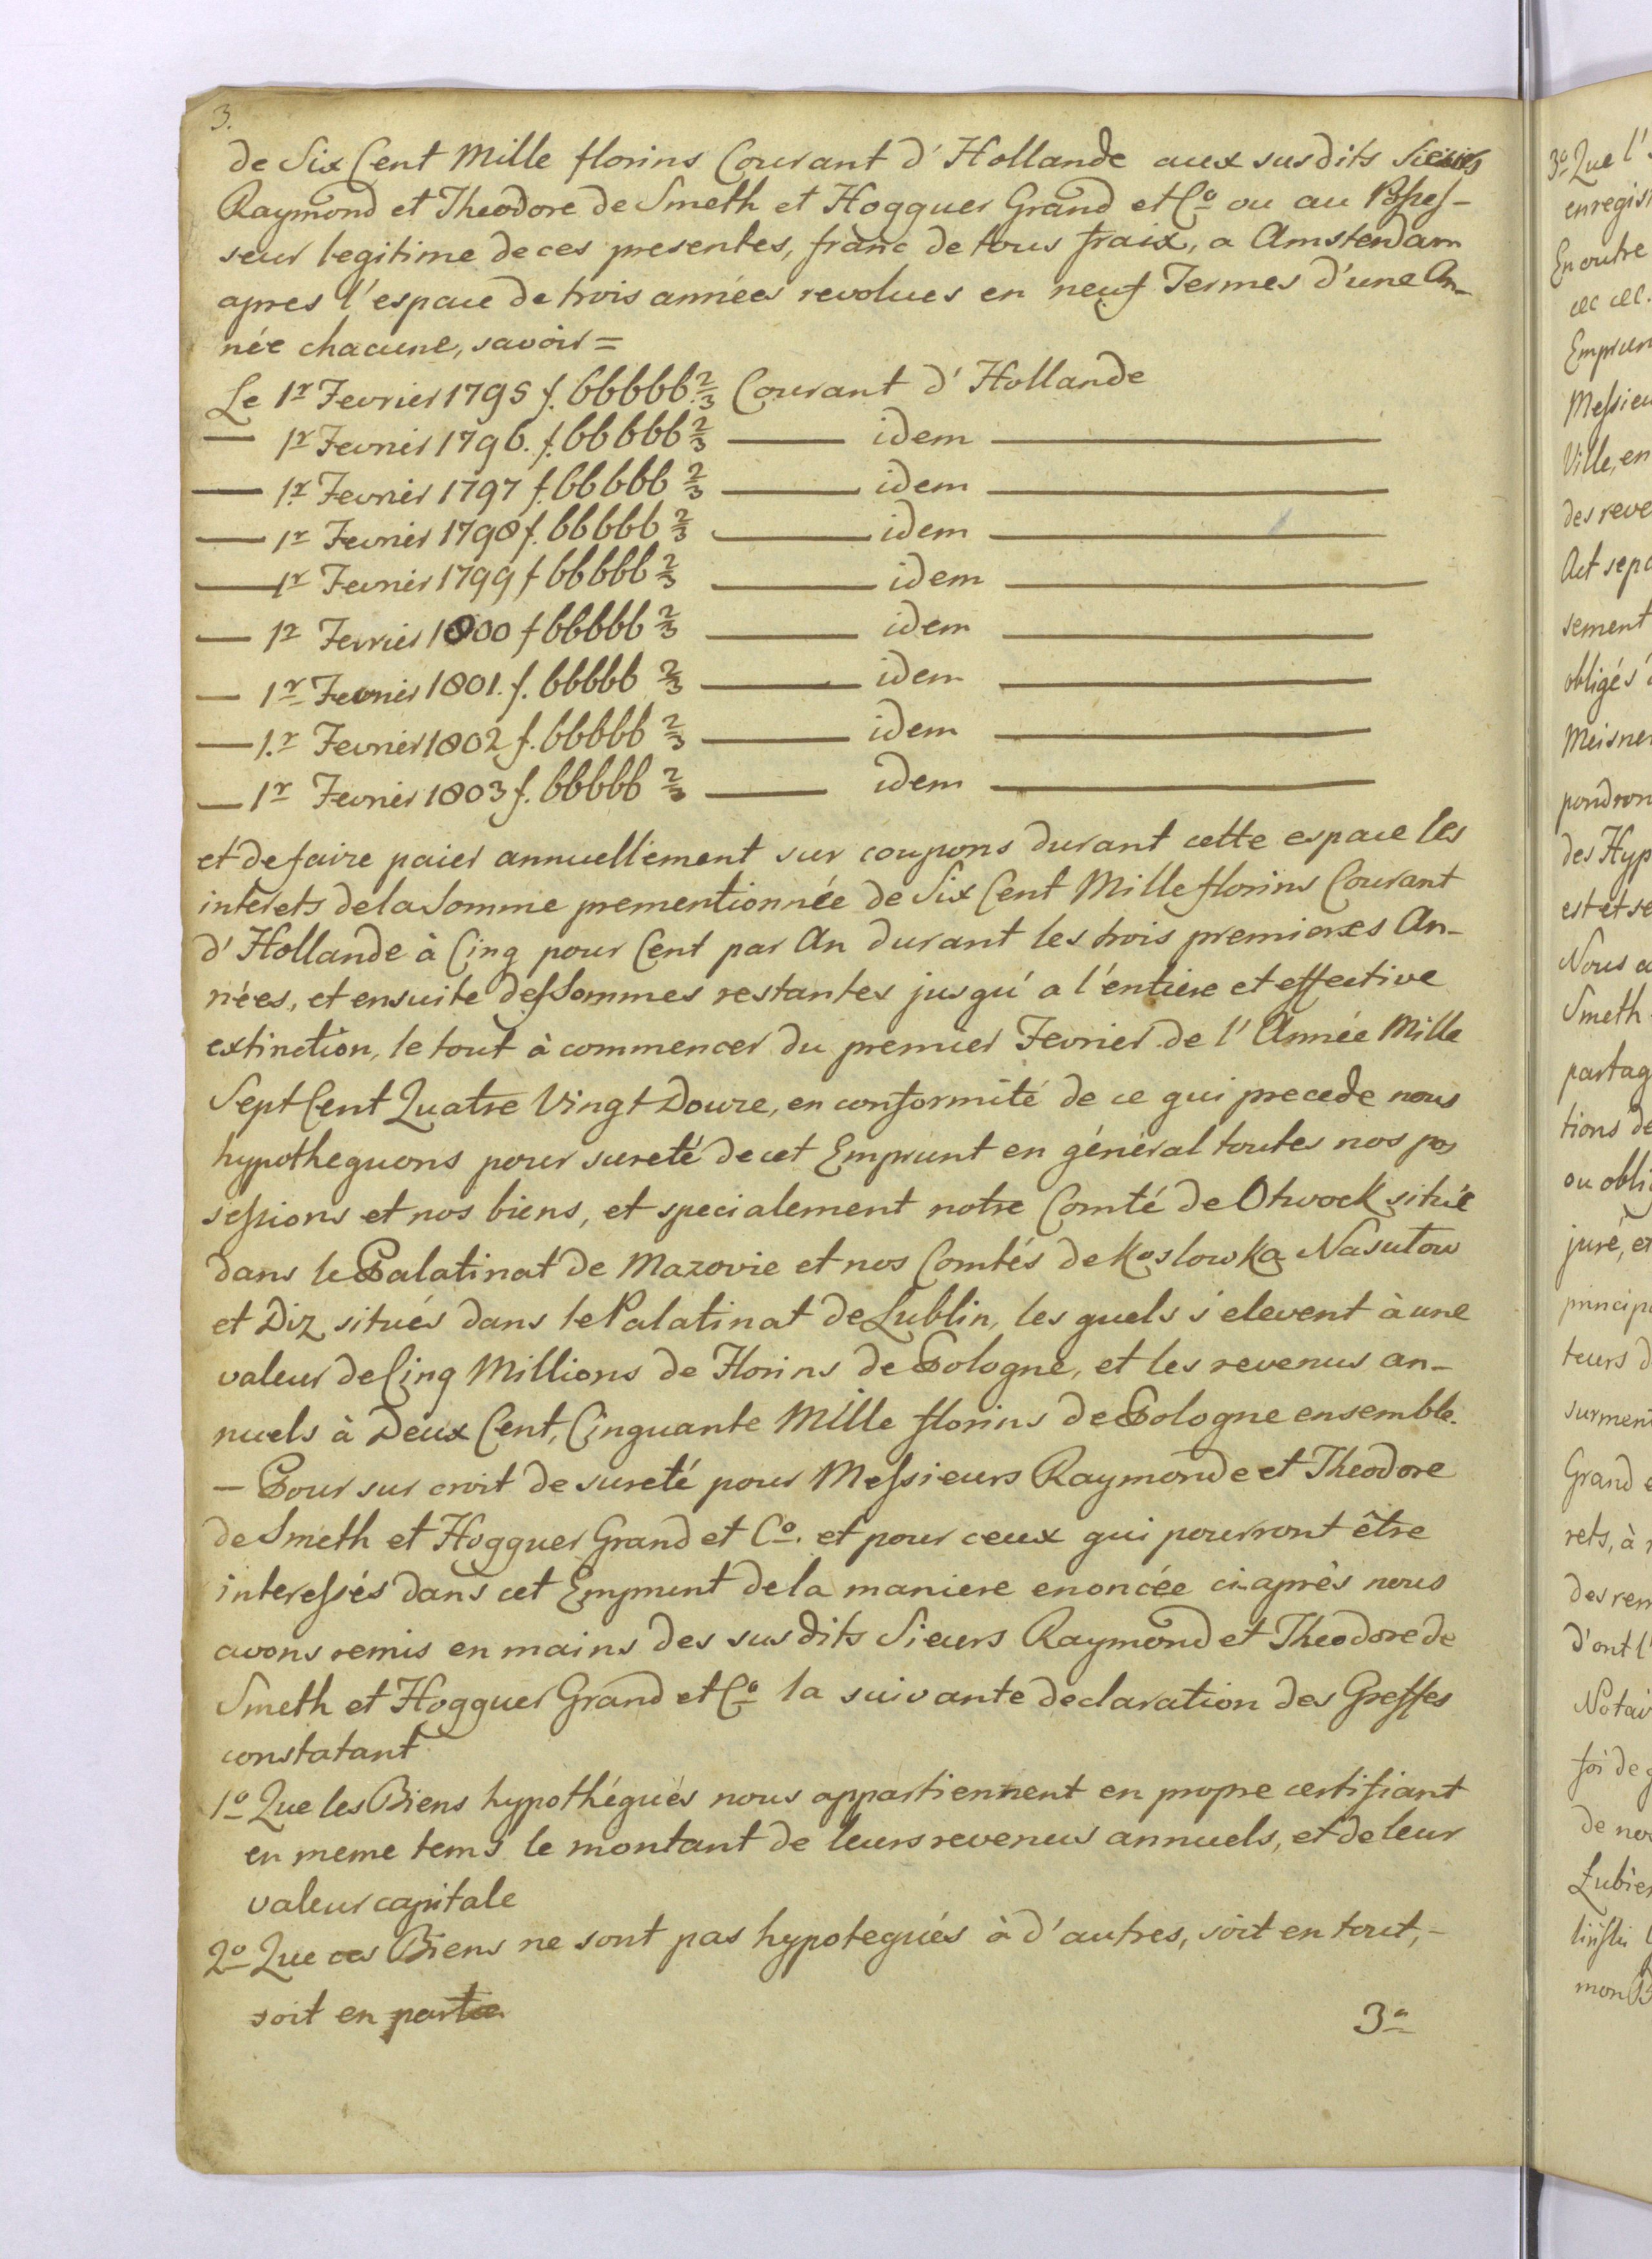 3.
de Six Cent Mille florins Courant d'Hollande aux susdits Sieurs
Raymond et Theodore de Smeth et Hogguer Grand et Co ou au Posses-
seur legitime de ces presentes, franc de tous fraix, a Amsterdam
apres l'espace de trois années revolues en neuf Termes d'une An-
née chacune, savoir =
Le 1r Fevrier 1795 f. 66666 2/3 Courant d'Hollande
— 1r Fevrier 1796. f. 66666 2/3 — idem —
— 1r Fevrier 1797 f. 66666 2/3 — idem —
— 1r Fevrier 1798 f. 66666 2/3 — idem —
— 1r Fevrier 1799 f 66666 2/3 — idem —
— 1r Fevrier 1800 f 66666 2/3 — idem —
— 1r Fevrier 1801. f. 66666 2/3 — idem —
— 1.r Fevrier 1802 f. 66666 2/3 — idem —
— 1r Fevrier 1803 f. 66666 2/3 — idem —
et de faire paier annuellement sur coupons durant cette espace les
interets de la Somme prementionnée de Six Cent Mille florins Courant
d'Hollande à Cinq pour Cent par An durant les trois premieres An-
nées, et ensuite des Sommes restantes jusqu'a l'entiere et effective
extinction, le tout à commencer du premier Fevrier de l'Année Mille
Sept Cent Quatre Vingt Douze, en conformité de ce qui precede nous
hypothequons pour sureté de cet Emprunt en général toutes nos pos
sessions et nos biens, et specialement notre Comté de Otwock situé
dans le Palatinat de Mazovie et nos Comtés de Koslowka Nasutow
et Diz situés dans le Palatinat de Lublin, les quels s'elevent à une
valeur de Cinq Millions de Florins de Pologne, et les revenus an-
nuels à Deux Cent, Cinquante Mille florins de Pologne ensemble.
— Pour sur croit de sureté pour Messieurs Raymonde et Theodore
de Smeth et Hogguer Grand et Co. et pour ceux qui pourront être
interessés dans cet Emprunt de la maniere enoncée ci-après nous
avons remis en mains des susdits Sieurs Raymond et Theodore de
Smeth et Hogguer Grand et Co la suivante declaration des Greffes
constatant
1o Que les Biens hypothéqués nous appartiennent en propre certifiant
en meme tems le montant de leurs revenus annuels, et de leur
valeur capitale
2o Que ces Biens ne sont pas hypotequés à d'autres, soit en tout,-
soit en partie
3o
3o Que l'
En outre
Ville, en
des reve
sement
obligés
des Hyp
est et se
Smeth
partag
tions de
ou obli
juré, et
teurs d
Grand e
rets, à
d'ont l'